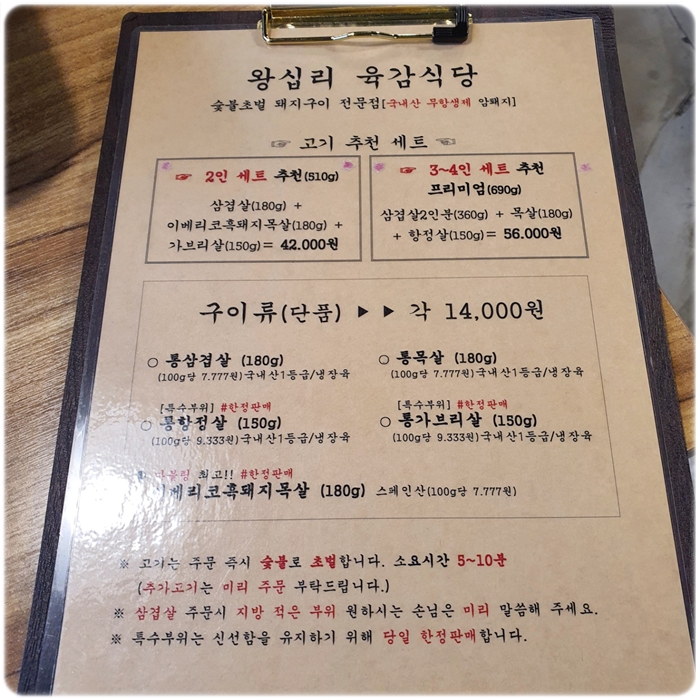 왕십리 육감식당
숯불초벌 돼지구이 전문점[국내산 무항생제 암돼지]
☞ 고기 추천 세트 ☜
☞ 2인 세트 추천(510g)
삼겹살(180g) +
이베리코흑돼지목살(180g) +
가브리살(150g) = 42.000원
☞ 3~4인 세트 추천
프리미엄(690g)
삼겹살2인분(360g) + 목살(180g)
+ 항정살(150g) = 56.000원
구이류(단품) ▶ ▶ 각 14,000원
○ 통삼겹살 (180g)
(100g당 7.777원)국내산1등급/냉장육
○ 통목살 (180g)
(100g당 7.777원)국내산1등급/냉장육
[특수부위] #한정판매
○ 통항정살 (150g)
(100g당 9.333원)국내산1등급/냉장육
[특수부위] #한정판매
○ 통가브리살 (150g)
(100g당 9.333원)국내산1등급/냉장육
최고!! #한정판매
이베리코흑돼지목살 (180g) 스페인산(100g당 7.777원)
※ 고기는 주문 즉시 숯불로 초벌합니다. 소요시간 5~10분
(추가고기는 미리 주문 부탁드립니다.)
※ 삼겹살 주문시 지방 적은 부위 원하시는 손님은 미리 말씀해 주세요.
※ 특수부위는 신선함을 유지하기 위해 당일 한정판매합니다.